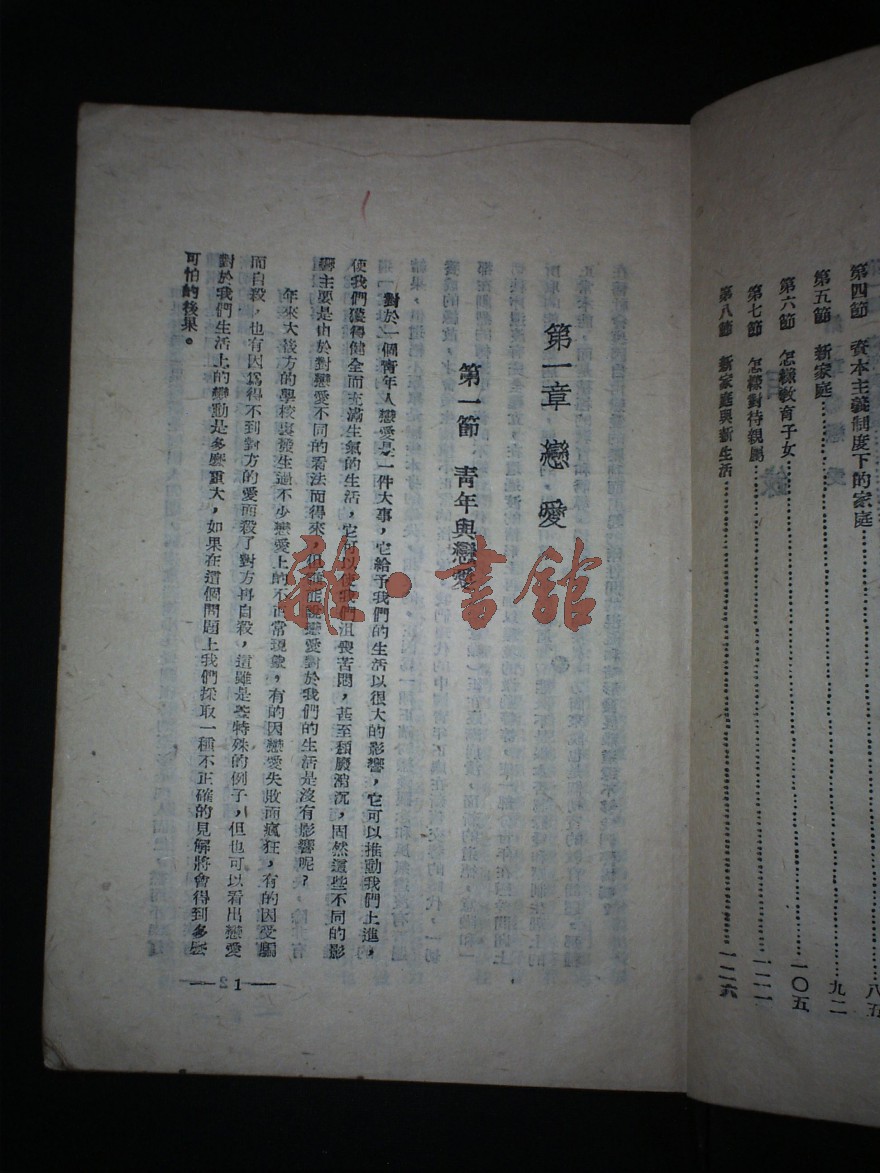 第四節 資本主義制度下的家庭⋯⋯八五
第五節 新家庭⋯⋯九二
第六節 怎樣教育子女⋯⋯一〇五
第七節 怎樣對待親屬⋯⋯一一一
第八節 新家庭與新生活⋯⋯一二六
第一章 戀愛
第一節 青年與戀愛
對於一個青年人戀愛是一件大事，它給予我們的生活以很大的影響，它可以推動我們上進，
使我們獲得健全而充滿生氣的生活，它可以使我們沮喪苦悶，甚至頹廢消沉，固然這些不同的影
響主要是由於對戀愛不同的看法而得來，但誰能說戀愛對於我們的生活是沒有影響呢？
年來大後方的學校裏發生過不少戀愛上的不正常現象，有的因戀愛失敗而瘋狂，有的因受騙
而自殺，也有因爲得不到對方的愛而殺了對方再自殺，這雖是些特殊的例子，但也可以看出戀愛
對於我們生活上的變動是多麽重大，如果在這個問題上我們採取一種不正確的見解將會得到多麽
可怕的後果。
— 1 —
雜·書館